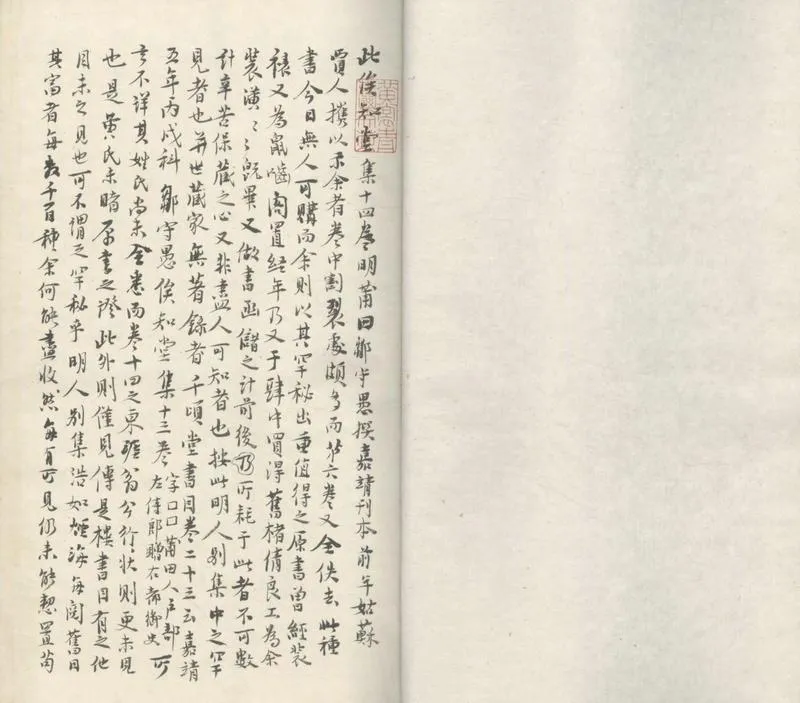 此俟知堂集十四卷明莆田鄒守愚撰嘉靖刊本前年姑蘇
賈人攜以示余者卷中割裂處頗多而第六卷又全佚去此種
書今日無人可購而余則以其罕秘出重值得之原書曾經裝
裱又為鼠嚙閣置經年乃又于肆中買得舊楮倩良工為余
裝潢〻〻既畢又做書函儲之計前後所耗于此者不可數
計辛苦保藏之心又非盡人可知者也按此明人別集中之罕
見者也并世藏家無著錄者千頃堂書目卷二十三云嘉靖
五年丙戌科鄒守愚俟知堂集十三卷字口口莆田人戶部左侍郎贈右都御史所
言不詳其姓氏尚未全悉而卷十四之東涯翁公行狀則更未見
也是黃氏未睹原書之證此外則僅見傳是樓書目有之他
目未之見也可不謂之罕秘乎明人別集浩如煙海每閱舊目
其富者每數千百種余何能盡收然每有所見仍未能恝置苟